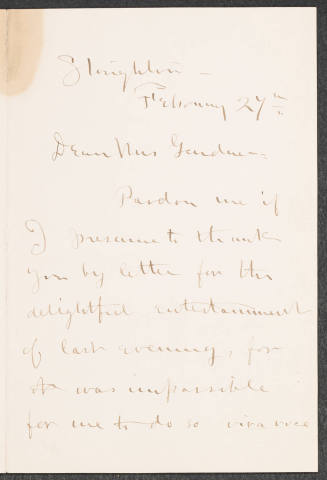 Stoughton —
February 27th
Dear Mrs Gardner —
Pardon me if
I presume to thank
you by letter for the
delightful entertainment
of last evening, for
it was impossible
for me to do so viva voce